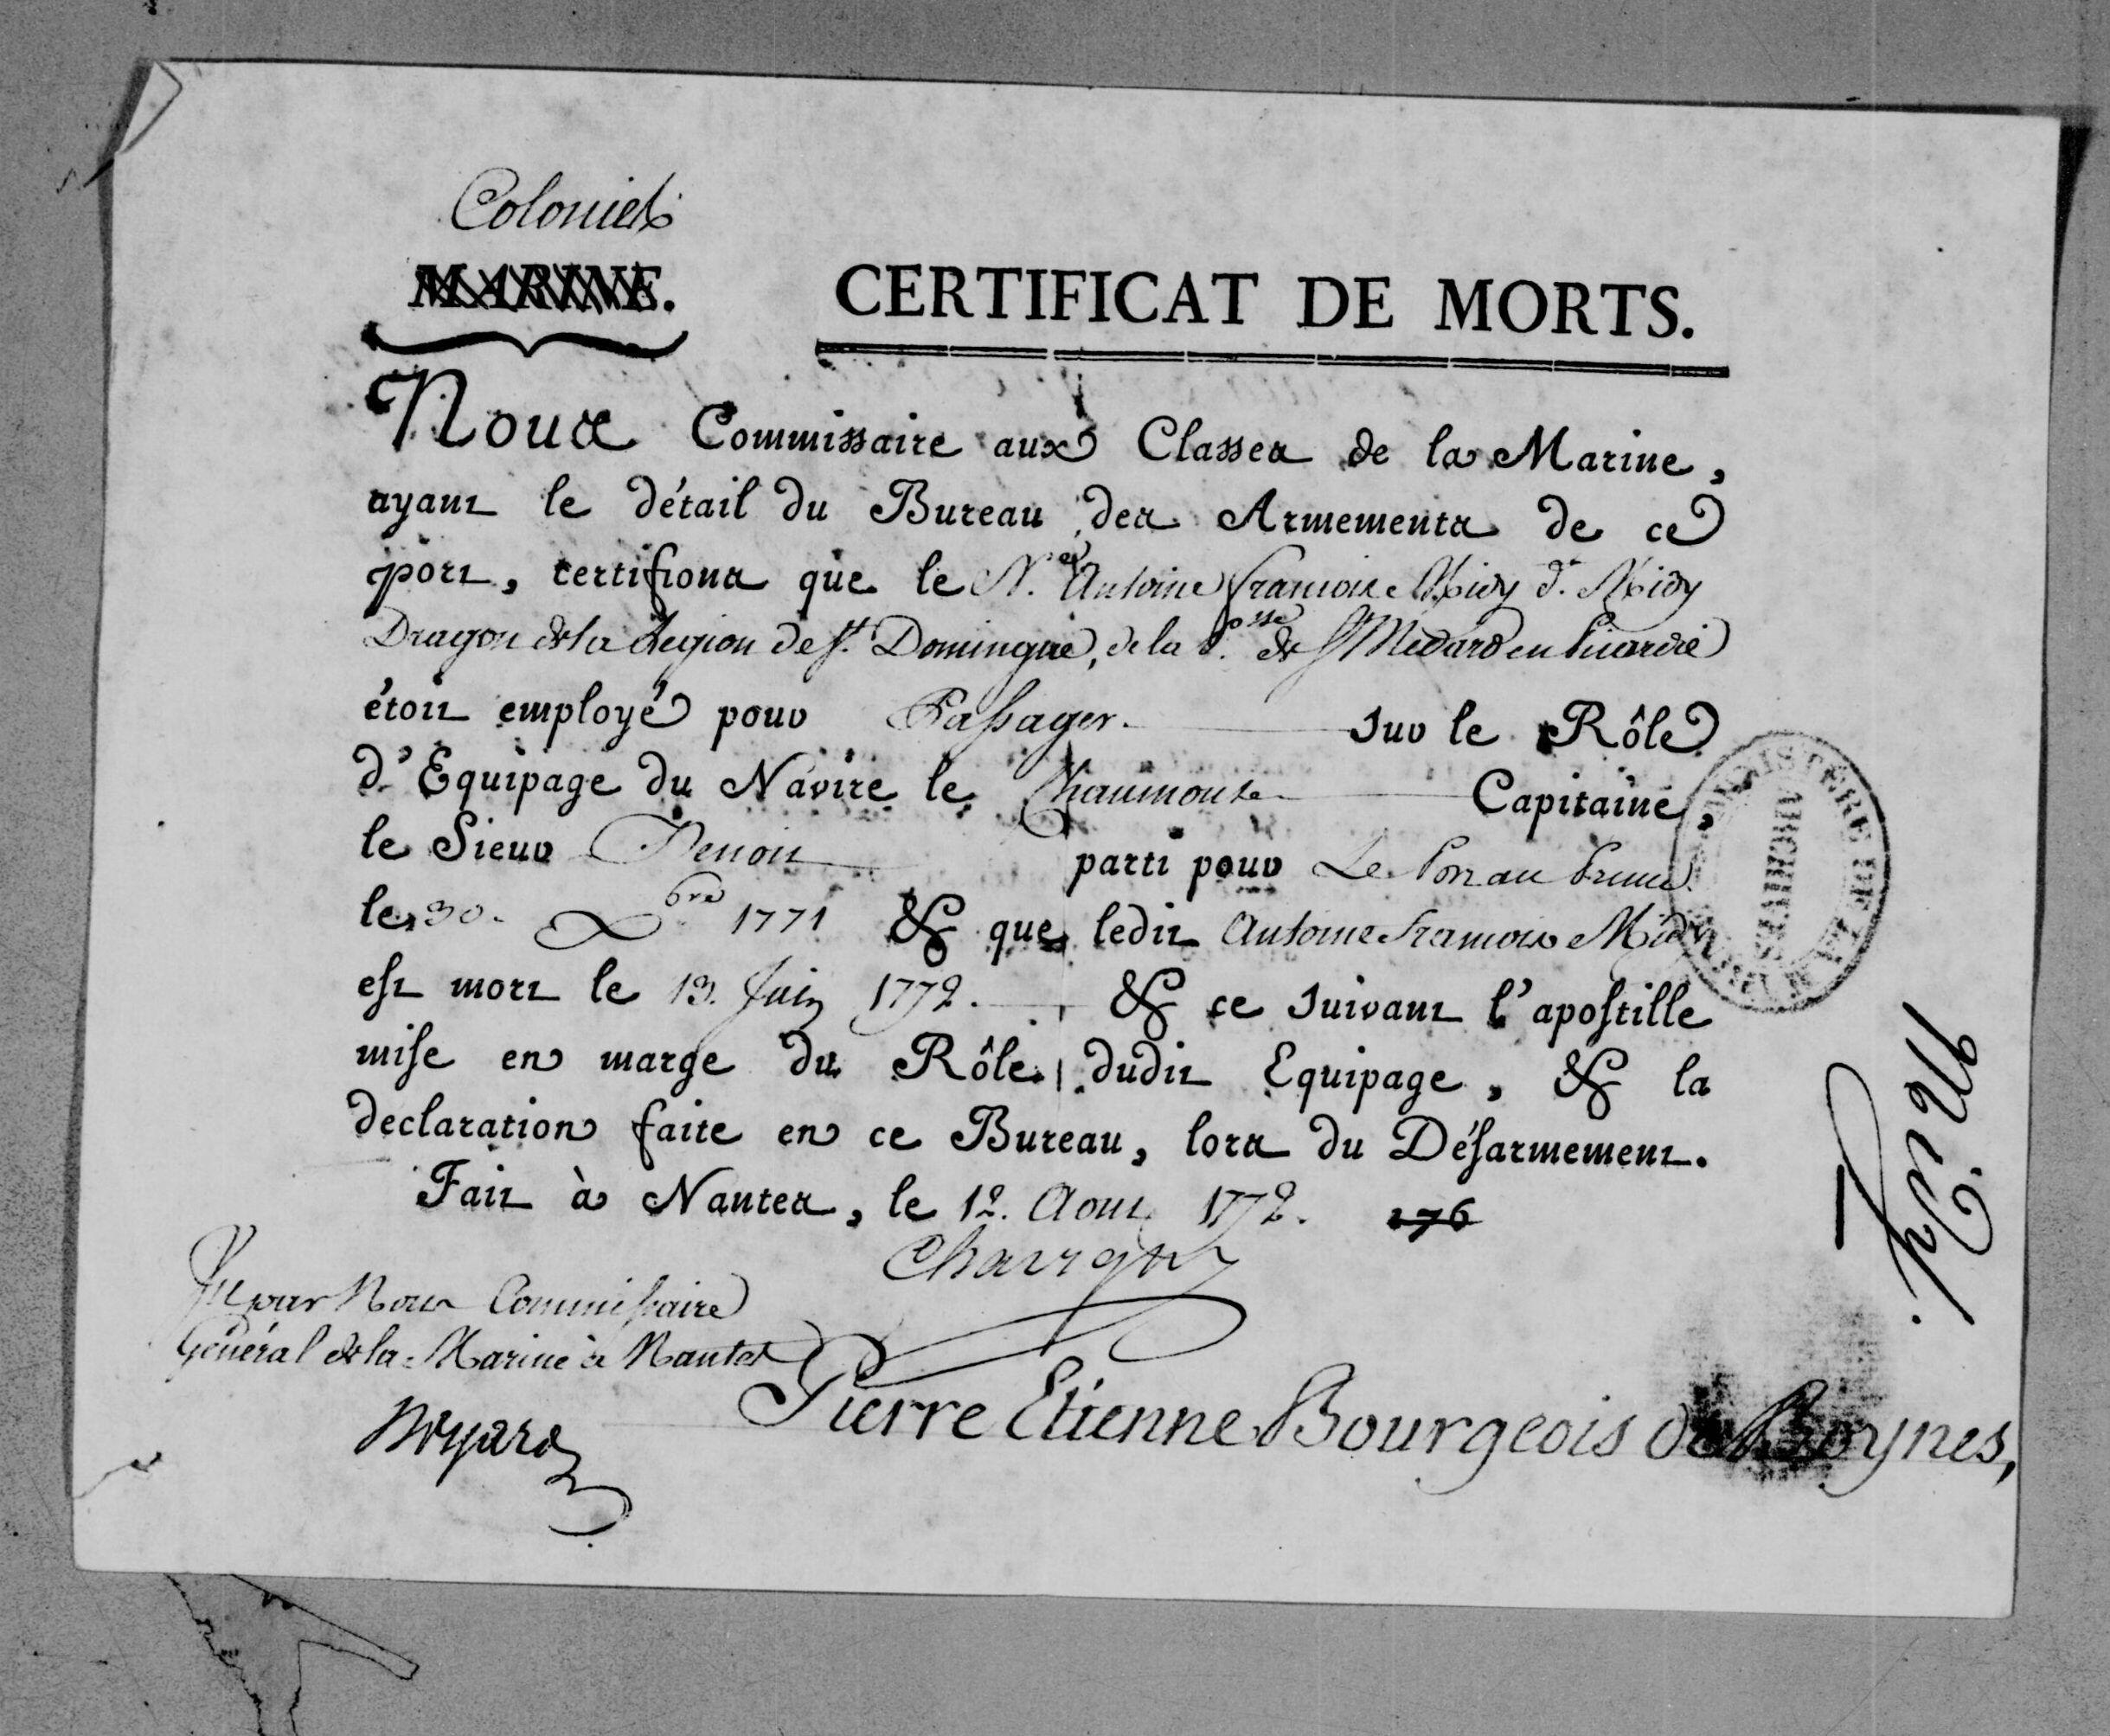 Colonies
MARINE.
CERTIFICAT DE MORTS.
Nous Commissaire aux Classes de la Marine,
ayant le détail du Bureau des Armements de ce
port, certifions que le N.é Antoine François Midy d.t Midy
Dragon de la Legion de St. Domingue, de la P.sse de St Medard en Picardie
étoit employé pour Passager sur le Rôle
d'Equipage du Navire le Chaumont Capitaine,
le Sieur Benoit parti pour Le Port au Prince
le 30. Xbre 1771 & que ledit Antoine François Midy
est mort le 13. Juin 1772. & ce suivant l'apostille
mise en marge du Rôle dudit Equipage, & la
declaration faite en ce Bureau, lors du Désarmement.
Fait à Nantes, le 12. Aout 1772. 276
Vu par Nous Commissaire
Général de la Marine à Nantes
Pierre Etienne Bourgeois de Boynes,
MINISTÈRE DE LA MARINE
ARCHIVES